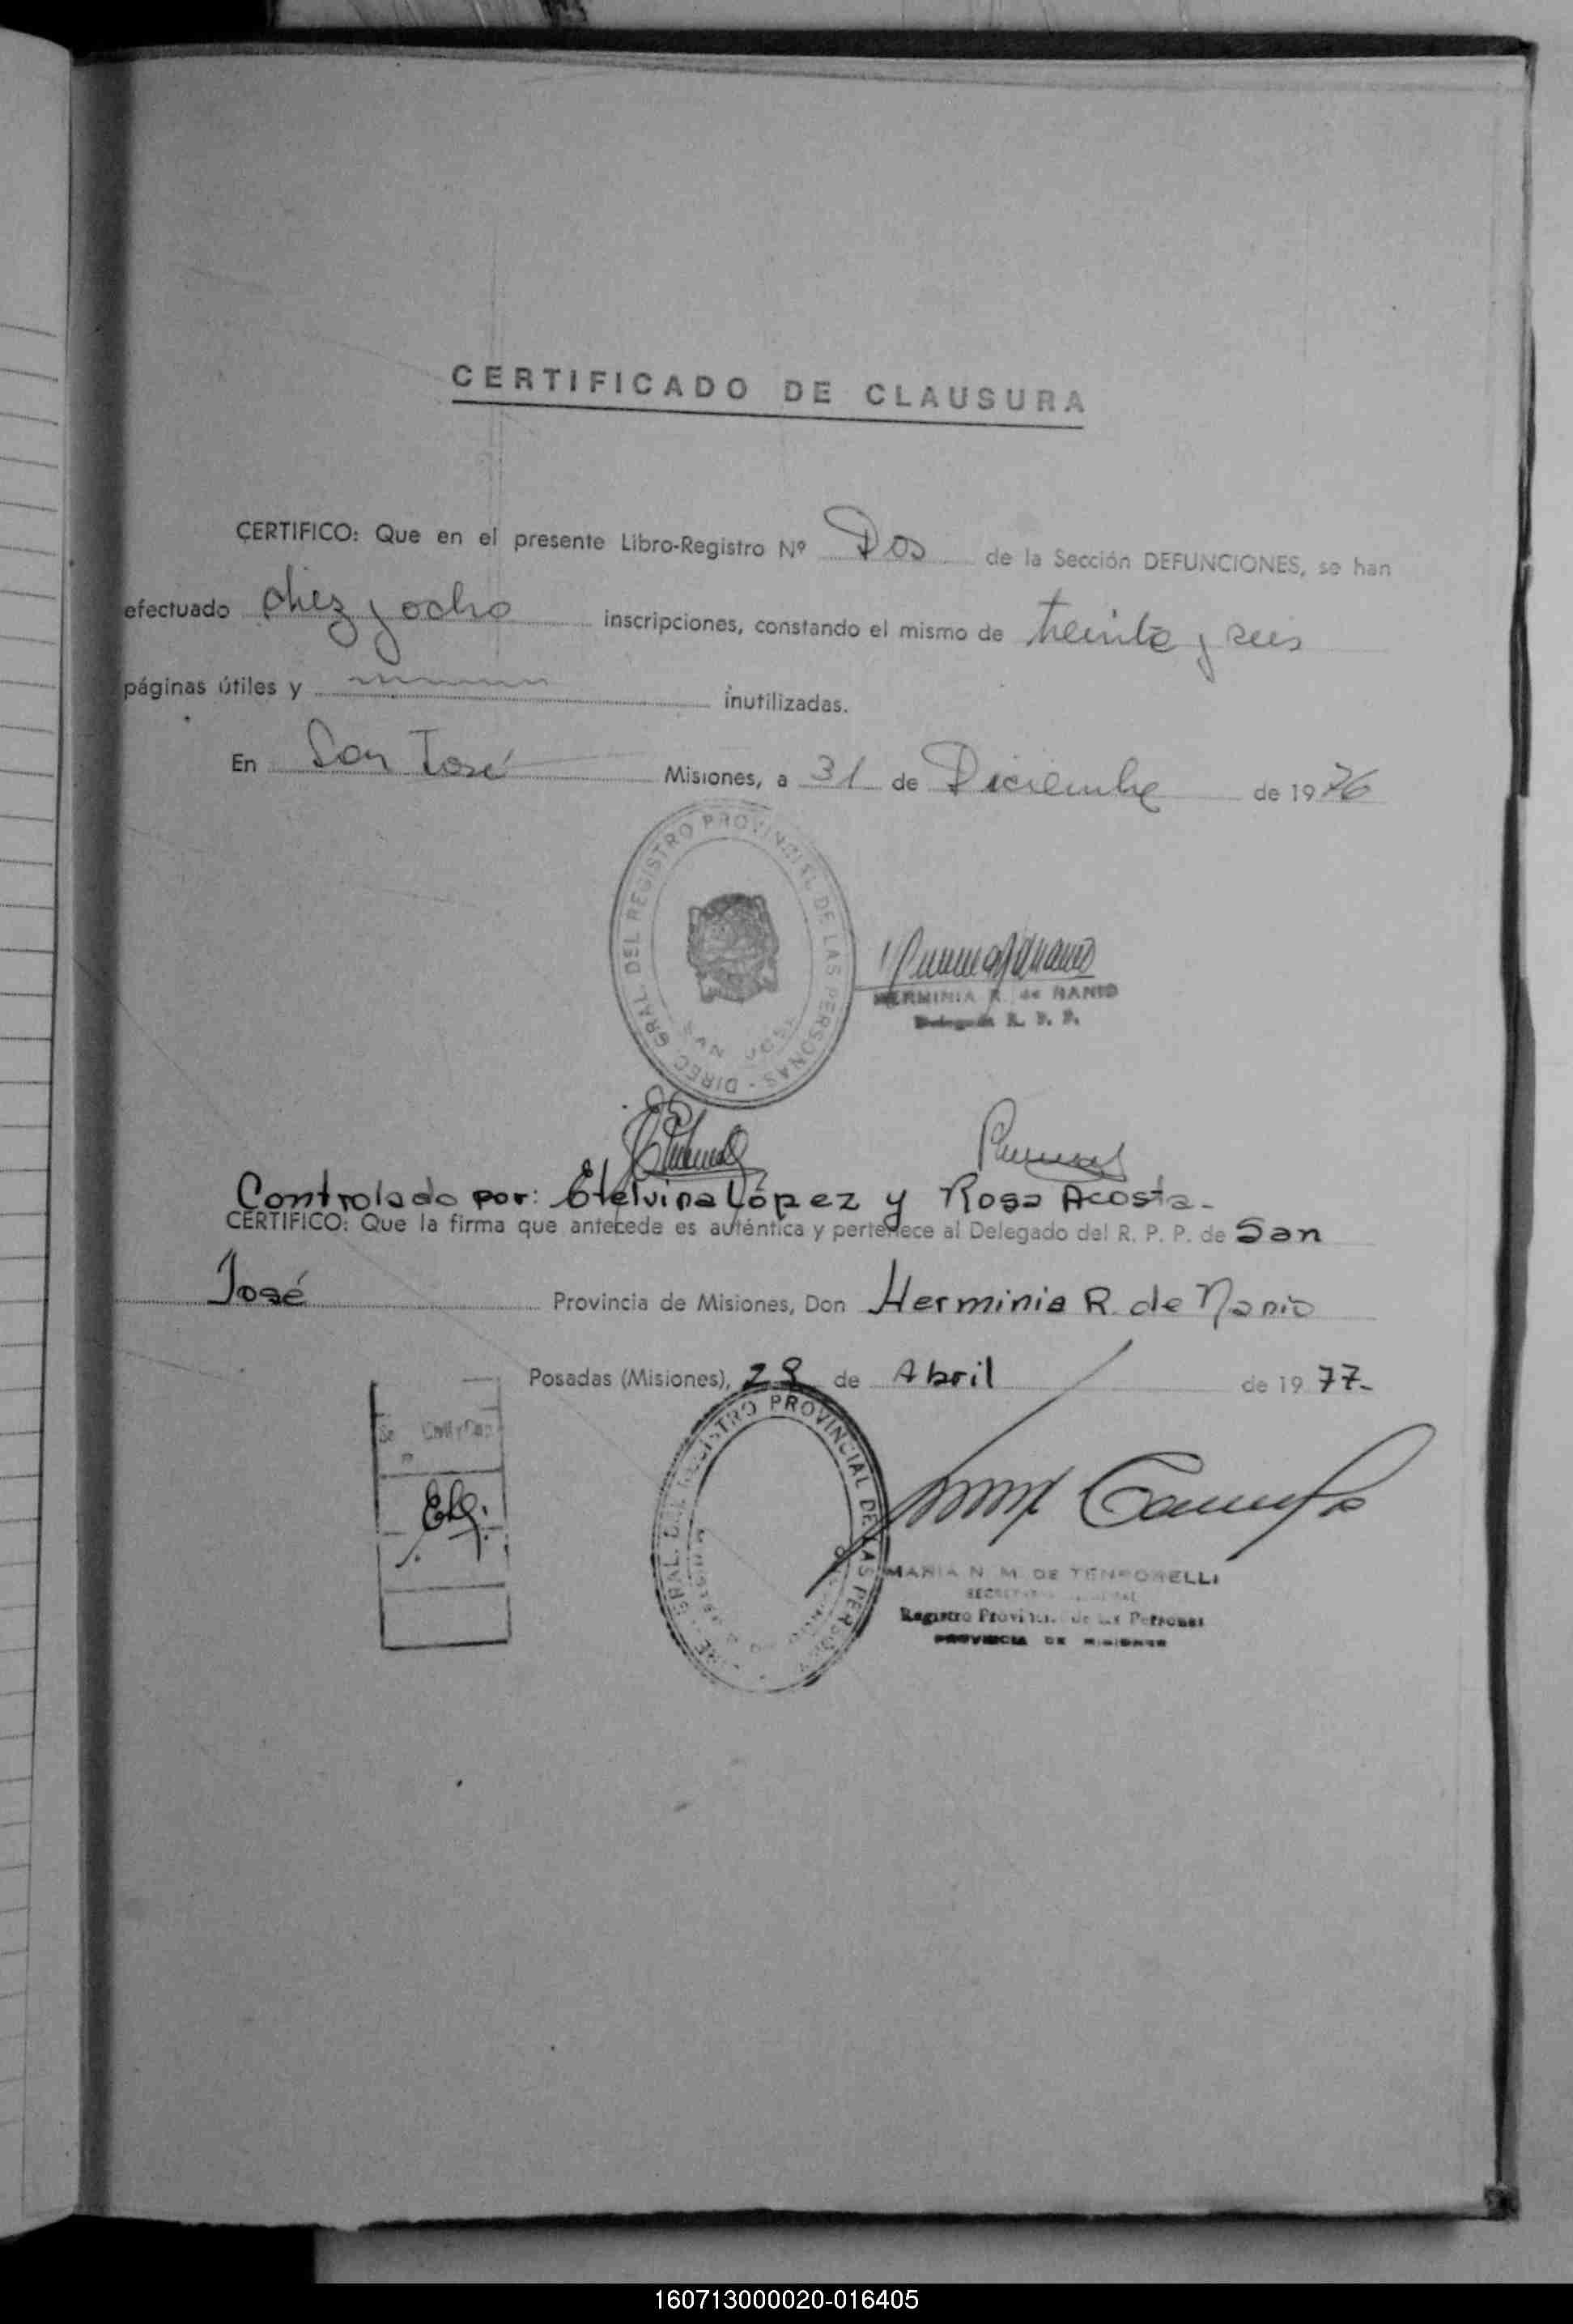 CERTIFICADO DE CLAUSURA
CERTIFICO: Que en el presente Libro-Registro Nº Dos de la Sección DEFUNCIONES, se han
efectuado diez y ocho inscripciones, constando el mismo de treinta y seis
páginas útiles y inutilizadas.
En San José Misiones, a 31 de Diciembre de 1976
DIREC. GRAL. DEL REGISTRO PROVINCIAL DE LAS PERSONAS -
SAN JOSE
HERMINIA R. de NANIO
Delegada R. P. P.
Controlado por: Etelvina López y Rosa Acosta.-
CERTIFICO: Que la firma que antecede es auténtica y pertenece al Delegado del R. P. P. de San
José Provincia de Misiones, Don Herminia R. de Nanio
Posadas (Misiones), 28 de Abril de 1977.-
GRAL. DEL REGISTRO PROVINCIAL DE LAS PERSONAS
MARIA N. M. DE TEMPORELLI
Registro Provincial de las Personas
PROVINCIA DE MISIONES
160713000020-016405